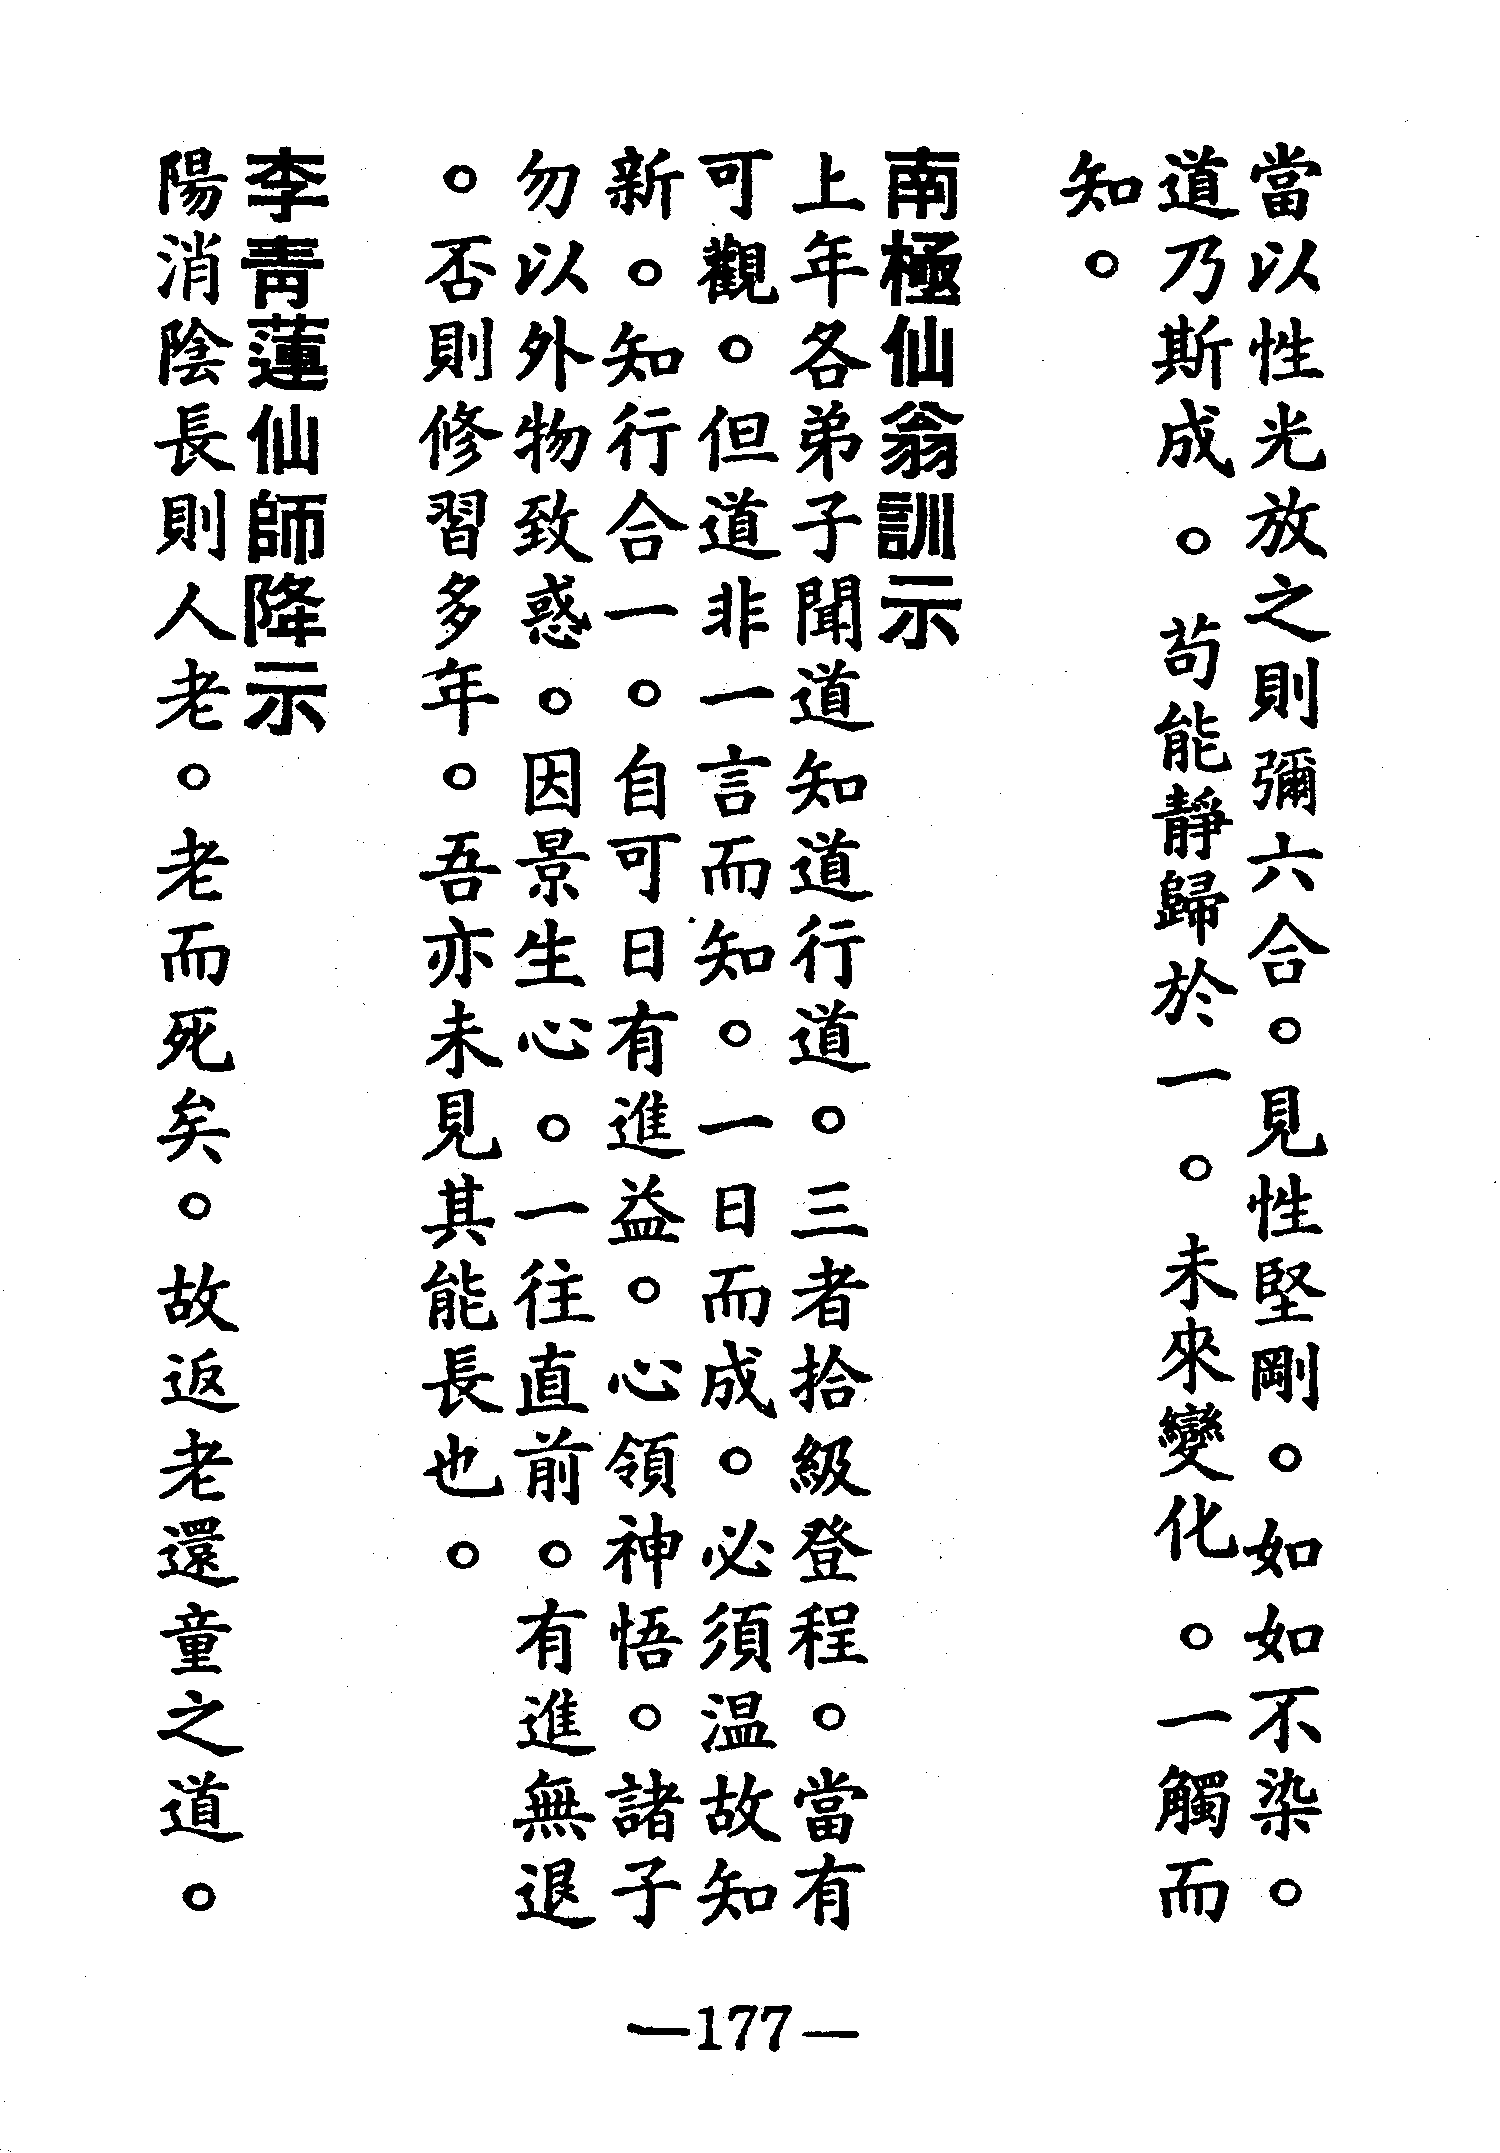 當以性光放之則彌六合。見性堅剛。如如不染。
道乃斯成。苟能靜歸於一。未來變化。一觸而
知。
南極仙翁訓示
上年各弟子聞道知道行道。三者拾級登程。當有
可觀。但道非一言而知。一日而成。必須温故知
新。知行合一。自可日有進益。心領神悟。諸子
勿以外物致惑。因景生心。一往直前。有進無退
。否則修習多年。吾亦未見其能長也。
李靑蓮仙師降示
陽消陰長則人老。老而死矣。故返老還童之道。
—177—